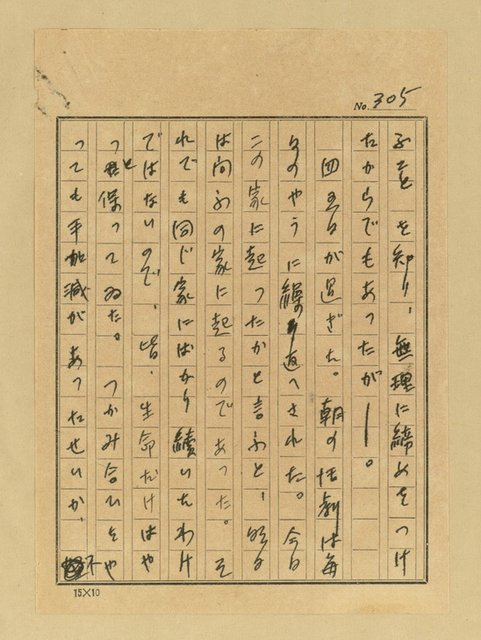 No. 305
ふことを知り、無理に締めをつけ
たからでもあつたが――。
四五日が過ぎた。朝の活劇は毎
日のやうに繰り返へされた。今日
この家に起つたかと言ふと、明日
は向ふの家に起るのであつた。そ
れでも同じ家にばかり続いたわけ
ではないので、皆、生命だけはや
つと保つてゐた。つかみ合ひをや
つても手加減があつたせいか、不
15×10